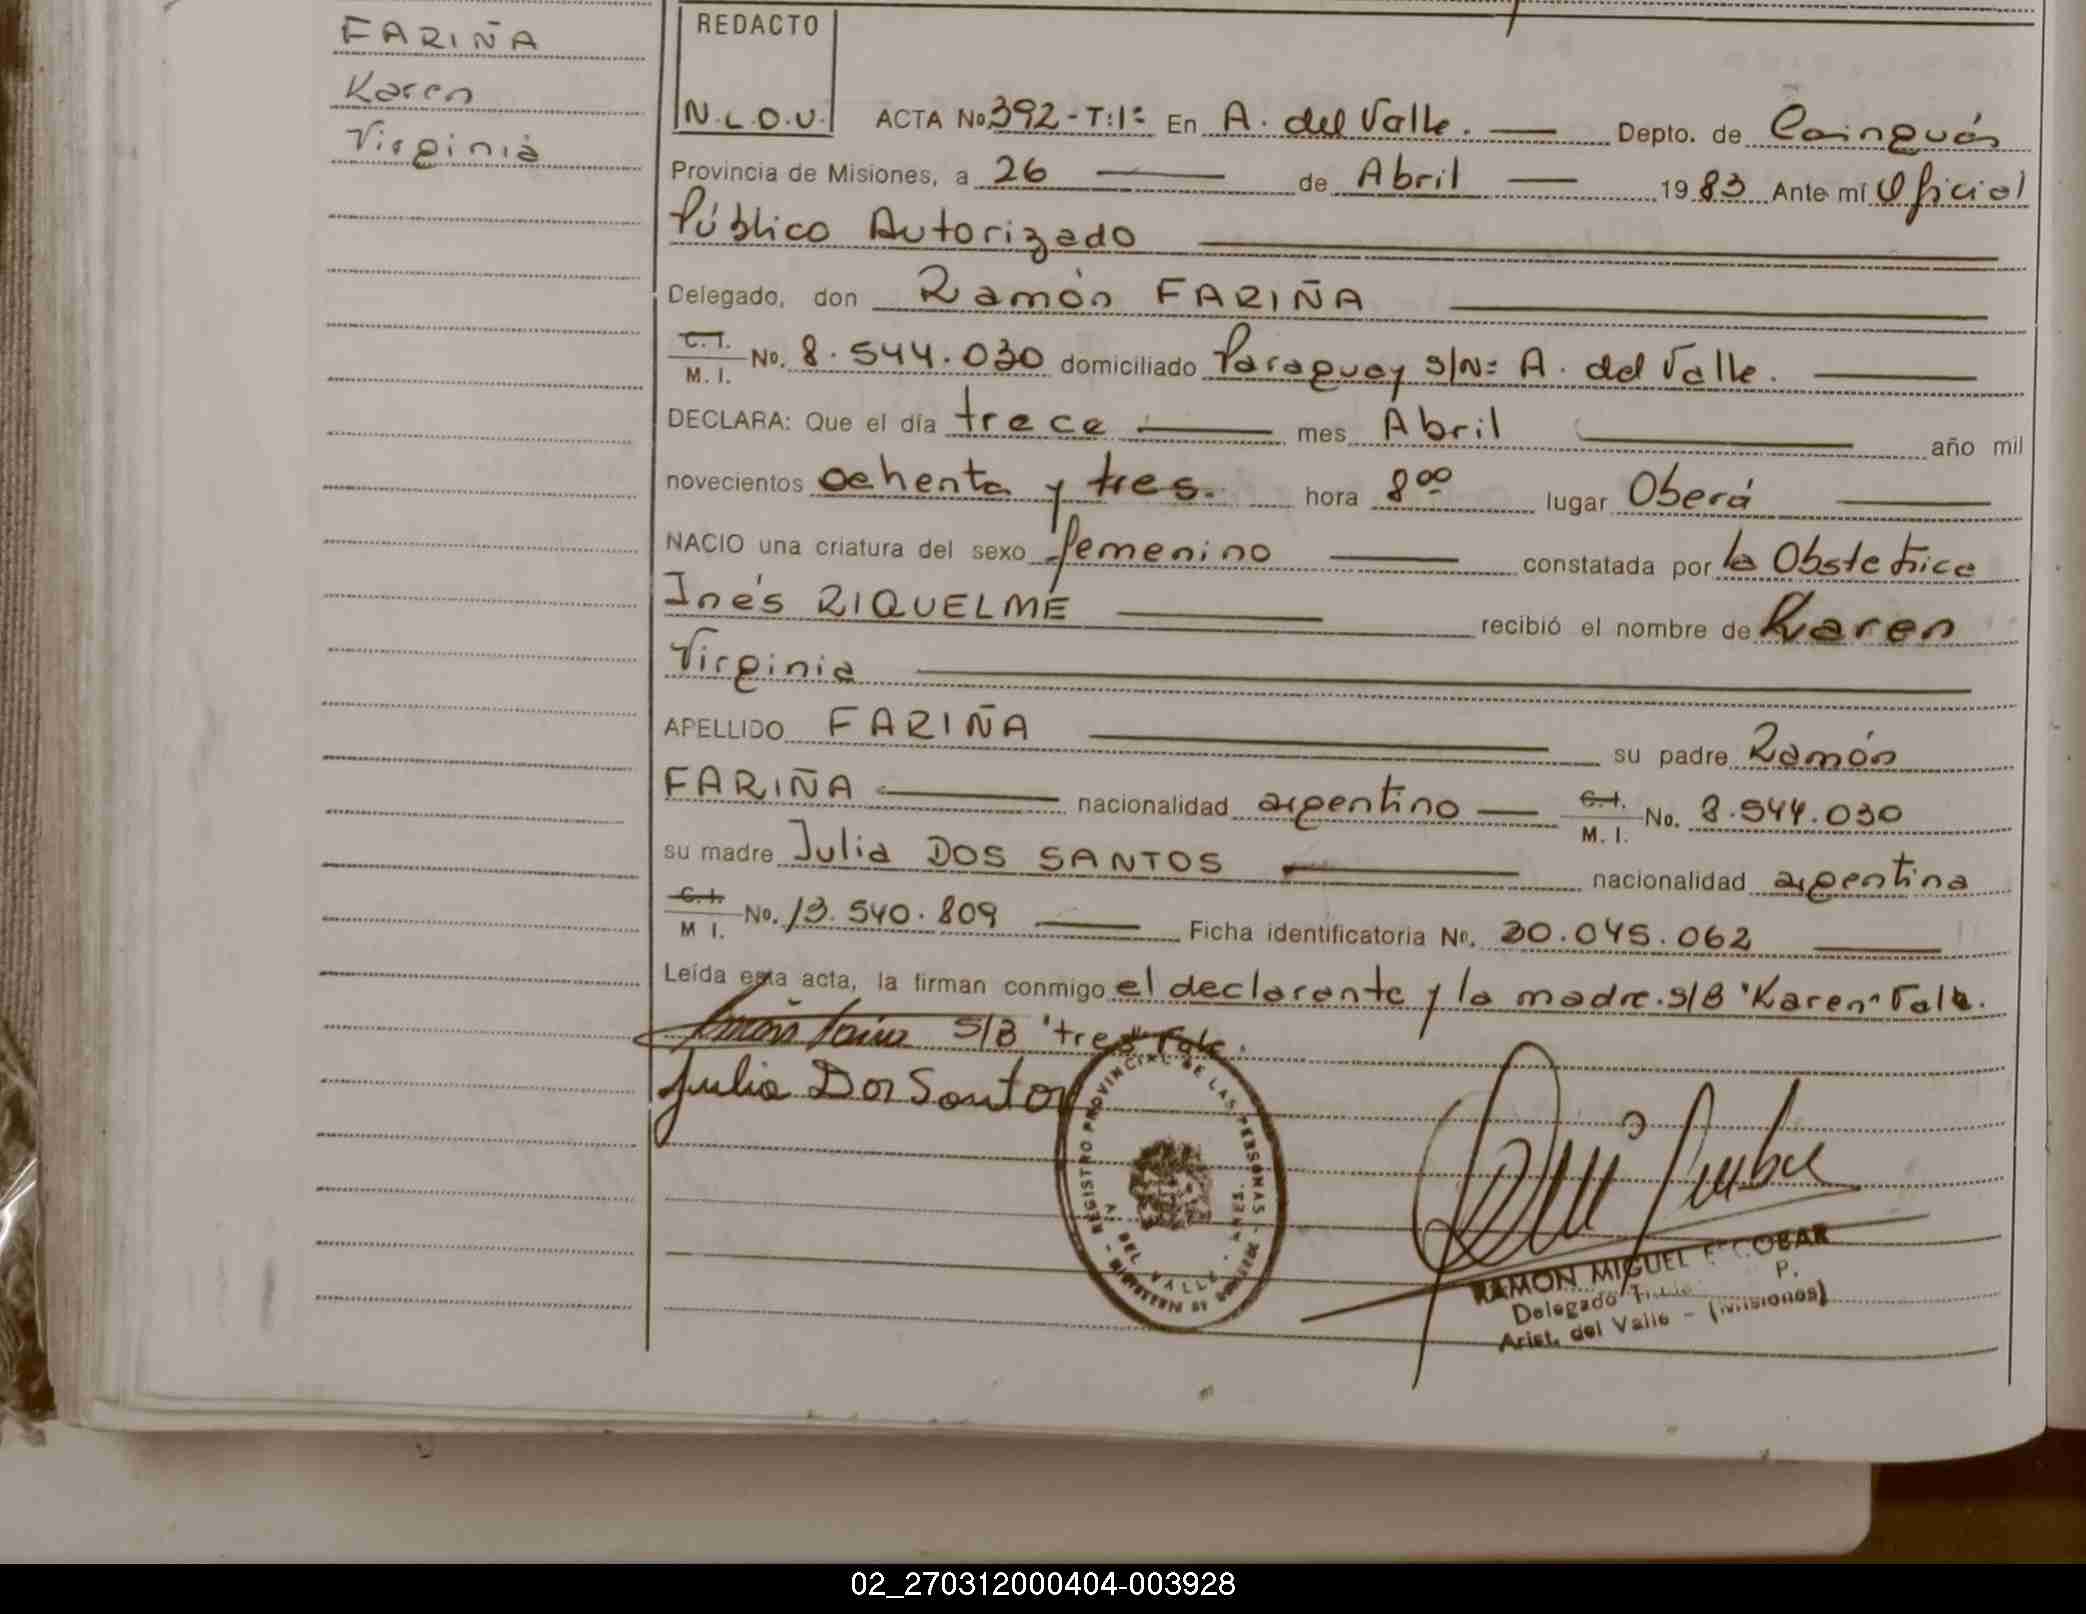 FARIÑA
Karen
Virginia
REDACTO
N.L.O.V.
ACTA No 392-T:1º En A. del Valle. Depto. de Cainguás
Provincia de Misiones, a 26 de Abril 1983 Ante mí Oficial
Público Autorizado
Delegado, don Ramón FARIÑA
C.I. M. I. No. 8.544.030 domiciliado Paraguay s/Nº A. del Valle.
DECLARA: Que el día trece mes Abril año mil
novecientos ochenta y tres. hora 8 00 lugar Oberá
NACIO una criatura del sexo femenino constatada por la Obstetrice
Inés RIQUELME recibió el nombre de Karen
Virginia
APELLIDO FARIÑA su padre Ramón
FARIÑA nacionalidad argentino C.I. M. I. No. 8.544.030
su madre Julia DOS SANTOS nacionalidad argentina
C.I. M I. No. 13.540.809 Ficha identificatoria No. 30.045.062
Leída esta acta, la firman conmigo el declarante y la madre. s/B "Karen" Vale.
S/B "tres" Vale.
Julia Dos Santos
REGISTRO PROVINCIAL DE LAS PERSONAS
A DEL VALLE
RAMON MIGUEL ESCOBAR
Delegado P.
Arist. del Valle - (Misiones)
02_270312000404-003928